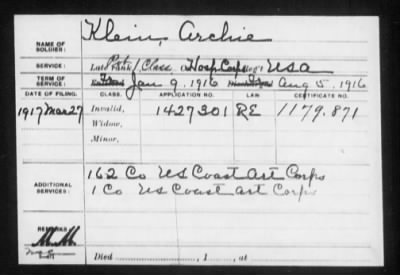 Klein, Archie
NAME OF SOLDIER:
SERVICE: Late rank, Pvt 1 Class, Co. Hosp Corps, Reg't USA
TERM OF SERVICE: Enlisted Fr Jan 9, 1916 Discharged To Aug 5, 1916
DATE OF FILING. CLASS. APPLICATION NO. LAW. CERTIFICATE NO.
1917 Mar 27 Invalid, 1427301 RE 1179.871
Widow,
Minor,
ADDITIONAL SERVICES: 162 Co US Coast Art Corps
1 Co US Coast Art Corps
REMARKS:
Died , 1 , at